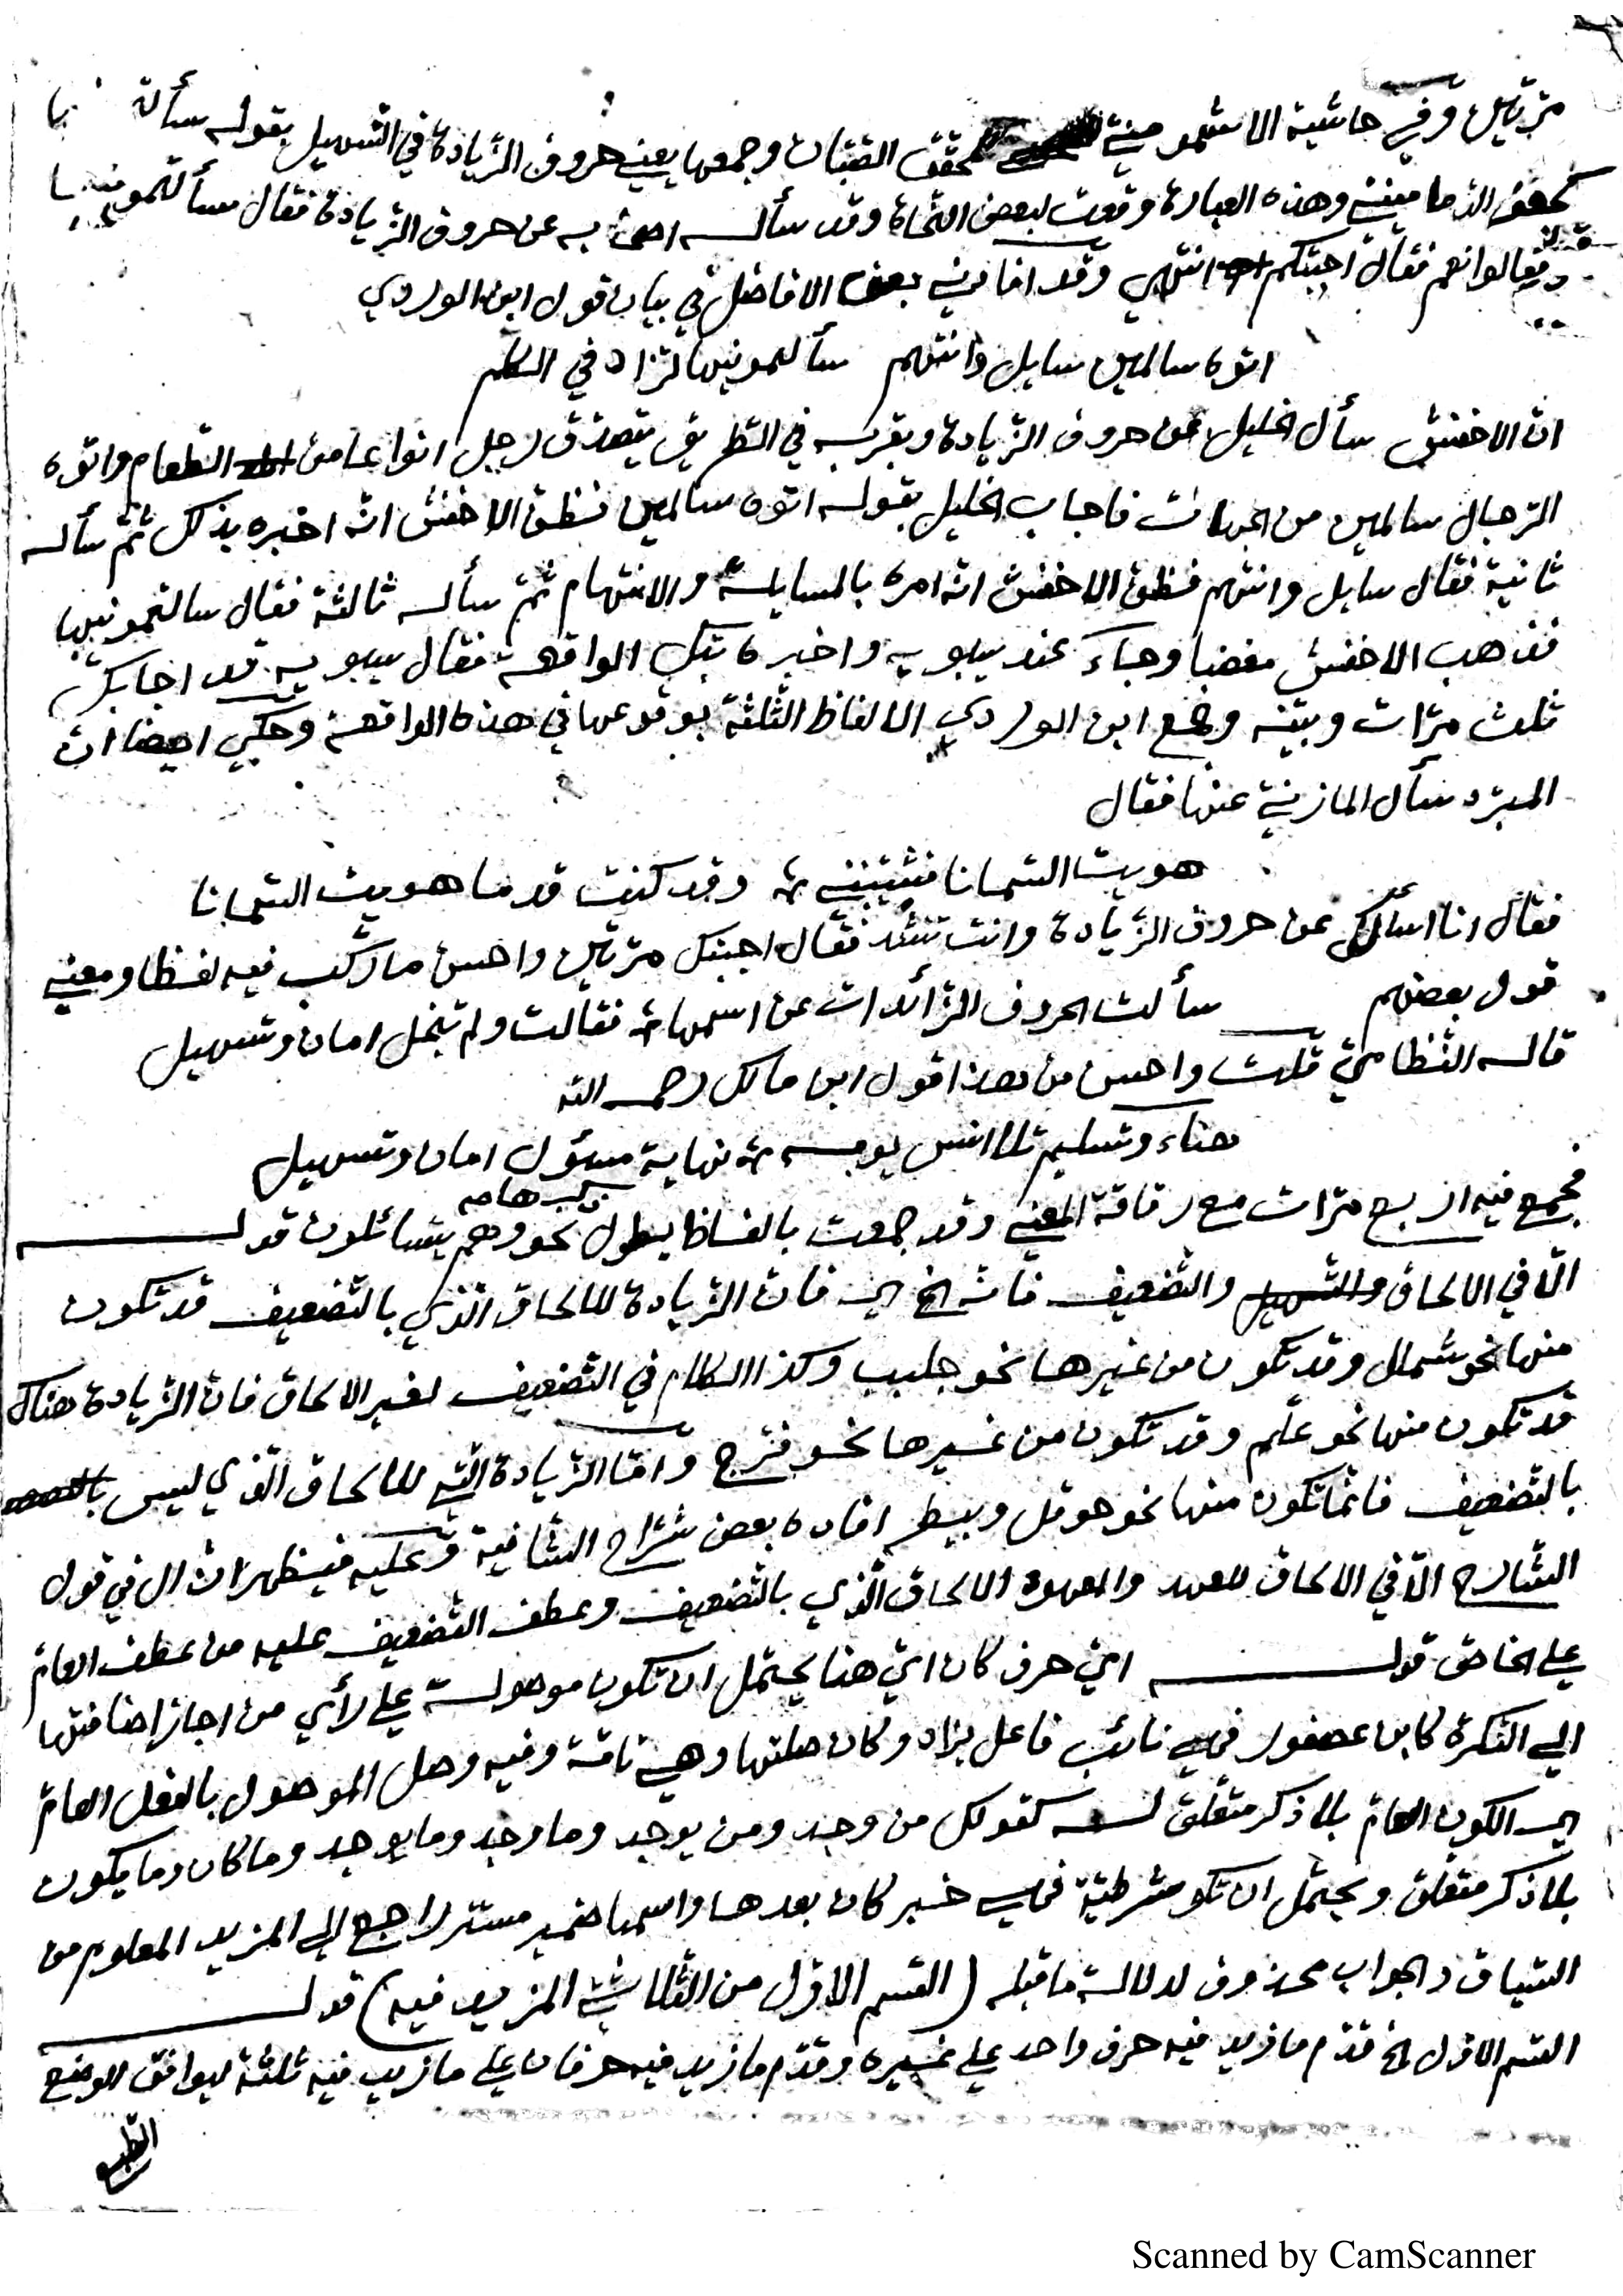 مرّتين وفي حاشية الاشمونية للمحقق الصّبّان وجمعها يعني حروف الزّيادة في التسهيل بقوله سألتمونيها
المحقق الدّمامينيّ وهذه العبارة وقعت لبعض النّحاة وقد سأله اصحابه عن حروف الزّيادة فقال سألتمونيها
فقالوا نعم فقال اجبتكم انتهى وقد افادني بعض الافاضل في بيان قول ابن الوردي
اتوه سالمين سايل وانتهم سألتمونيها تزاد في الكلم
انّ الاخفش سأل الخليل عن حروف الزّيادة وبقربه في الطّريق يتصدّق رجل انواعا من الطّعام واتوه
الرّجال سالمين من الجهات فاجاب الخليل بقوله اتوه سالمين فظنّ الاخفش انّه اخبره بذلك ثمّ سأله
ثانية فقال سايل وانتهم فظنّ الاخفش انّه امره بالمسايلة والانتهام ثمّ سأله ثالثة فقال سالتمونيها
فذهب الاخفش مغضبا وجاء عند سيبويه واخبره بتلك الواقعة فقال سيبويه قد اجابك
ثلث مرّات وبيّنه وجمع ابن الوردي الالفاظ الثلثة بوقوعها في هذه الواقعة وحكي ايضا انّ
المبرّد سأل المازنيّ عنها فقال
هويت السّمانا فشيّبنني وقد كنت قدما هويت السّمانا
فقال انا اسألك عن حروف الزّيادة وانت تنشد فقال اجبتك مرّتين واحسن ما ركّب فيه لفظا ومعنى
قول بعضهم سألت الحروف الزّائدات عن اسمها فقالت ولم تبخل امان وتسهيل
قاله النّظاميّ قلت واحسن من هذا قول ابن مالك رحمه الله
هناء وتسليم تلا انس يومه نهاية مسؤول امان وتسهيل
فجمع فيه اربع مرّات مع رقاقة المعنى وقد جمعت بالفاظ يطول نحو وهم يتسائلون قوله
الّا في الالحاق والتّضعيف فانّه الخ اي فانّ الزّيادة للالحاق الّذي بالتّضعيف قد تكون
منها نحو شملل وقد تكون من غيرها نحو جلبب وكذا الكلام في التّضعيف لغير الالحاق فانّ الزّيادة هناك
قد تكون منها نحو علّم وقد تكون من غيرها نحو فرّج وامّا الزّيادة الّتي للالحاق الّذي ليس
بالتّضعيف فانّما تكون منها نحو حوقل وبيطر افاده بعض شرّاح الشّافية وعليه فيظهر انّ ال في قول
الشّارح الّا في الالحاق للعهد والمعهود الالحاق الّذي بالتّضعيف وعطف التّضعيف عليه من عطف العامّ
على الخاصّ قوله ايّ حرف كان ايّ هنا يحتمل ان تكون موصولة على رأي من اجاز اضافتها
الى النّكرة كابن عصفور فهي نائب فاعل يزاد وكان صلتها وهي تامّة وفيه وصل الموصول بالفعل العامّ
اي الكون العامّ بلا ذكر متعلّق له كقولك من وجد ومن يوجد وما وجد وما يوجد وما كان وما يكون
بلا ذكر متعلّق ويحتمل ان تكو شرطيّة فهي خبر كان بعدها واسمها ضمير مستتر راجع الى المزيد المعلوم من
السّياق والجواب محذوف لدلالة ما قبله (القسم الاوّل من الثّلاثيّ المزيد فيه) قوله
القسم الاوّل الخ قدّم ما زيد فيه حرف واحد على غيره وقدّم ما زيد فيه حرفان على ما زيد فيه ثلثة ليوافق الوضع
الطّبع
Scanned by CamScanner